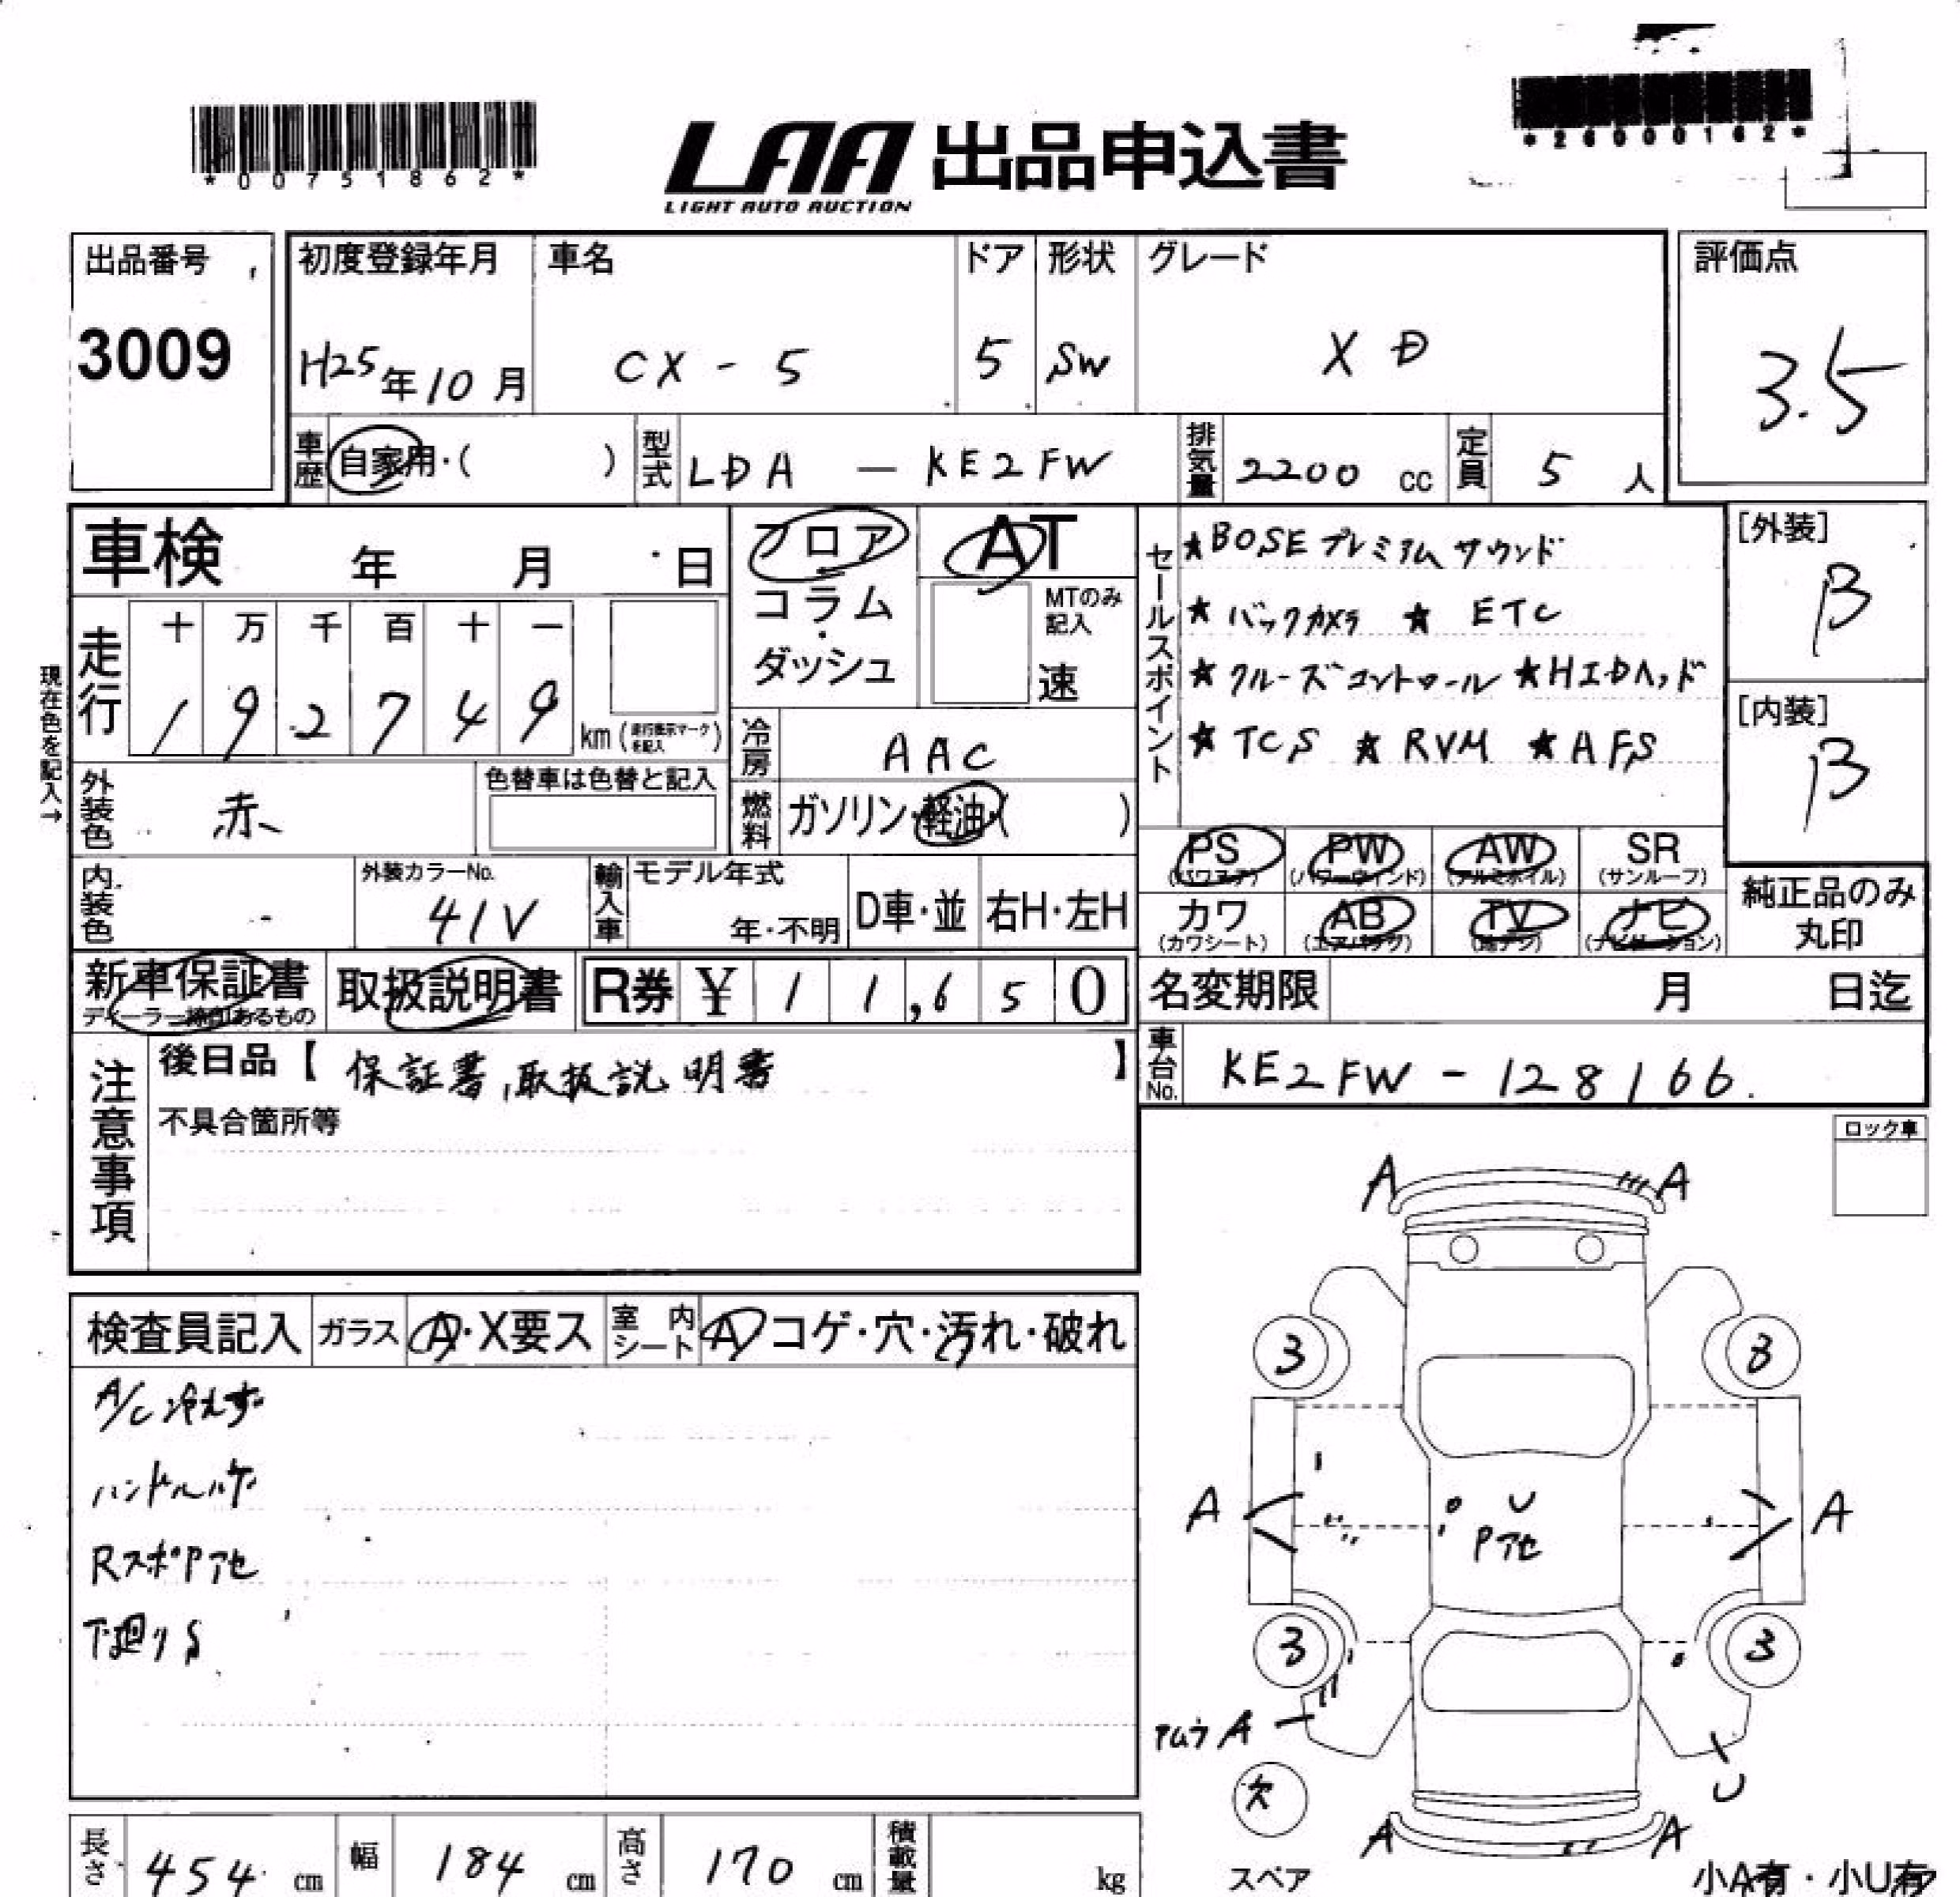 *00751862*
LAA 出品申込書
LIGHT AUTO AUCTION
*26000162*
出品番号
3009
初度登録年月
H25年10月
車名
CX-5
ドア
5
形状
SW
グレード
XD
評価点
3.5
車歴 自家用・( )
型式 LDA — KE2FW
排気量 2200 cc
定員 5 人
車検 年 月 日
フロア
コラム・
ダッシュ
AT
MTのみ記入
速
走行
十 万 千 百 十 一
1 9 2 7 4 9
km(走行表示マークを記入)
現在色を記入→
外装色 赤
色替車は色替と記入
冷房 AAC
燃料 ガソリン・軽油・( )
内装色 -
外装カラーNo.
41V
輸入車
モデル年式
年・不明
D車・並
右H・左H
セールスポイント
★BOSEプレミアムサウンド
★バックカメラ ★ETC
★クルーズコントロール ★HIDヘッド
★TCS ★RVM ★AFS
[外装]
B
[内装]
B
PS (パワステ)
PW (パワーウインド)
AW (アルミホイル)
SR (サンルーフ)
カワ (カワシート)
AB (エアバック)
TV (地デジ)
ナビ (ナビゲーション)
純正品のみ
丸印
新車保証書
ディーラー捺印あるもの
取扱説明書
R券 ¥ 1 1,6 5 0
名変期限 月 日迄
車台No. KE2FW - 128166.
注意事項
後日品【 保証書,取扱説明書 】
不具合箇所等
ロック車
検査員記入
ガラス A・X要ス
室内シート A コゲ・穴・汚れ・破れ
A/C冷えず
ハンドルハゲ
RスポPアセ
下廻りS
A A
3 3
A A
U
Pアセ
3 3
アムラA
U
欠
スペア
A A
小A有・小U有
長さ 454 cm
幅 184 cm
高さ 170 cm
積載量 kg